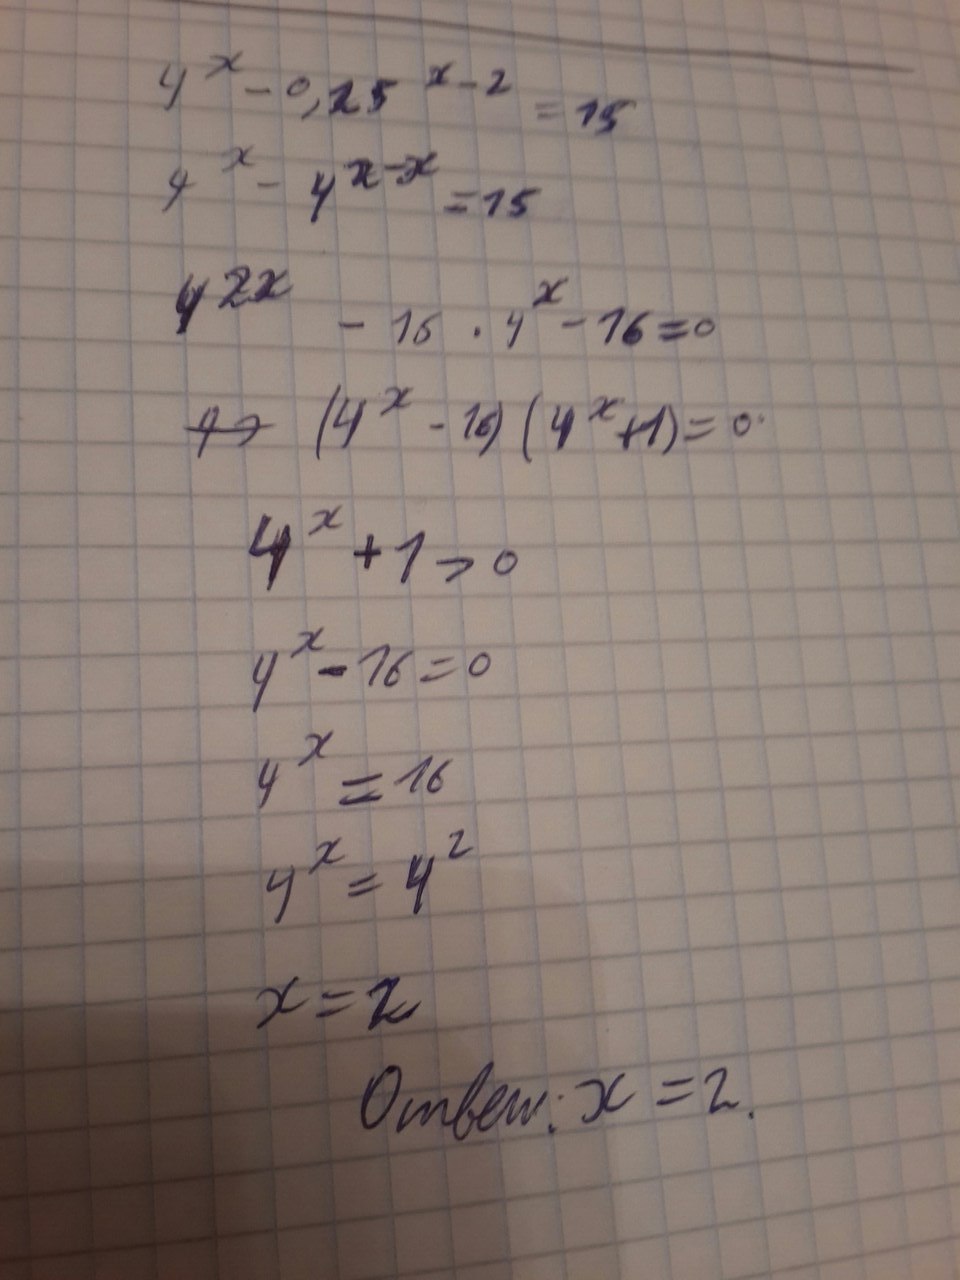 4^x - 0,25^{x-2} = 15
4^x - 4^{x-x} = 15
4^{2x} - 16 · 4^x - 16 = 0
(4^x - 16) (4^x + 1) = 0
4^x + 1 > 0
4^x - 16 = 0
4^x = 16
4^x = 4^2
x = 2
Ответ: x = 2.